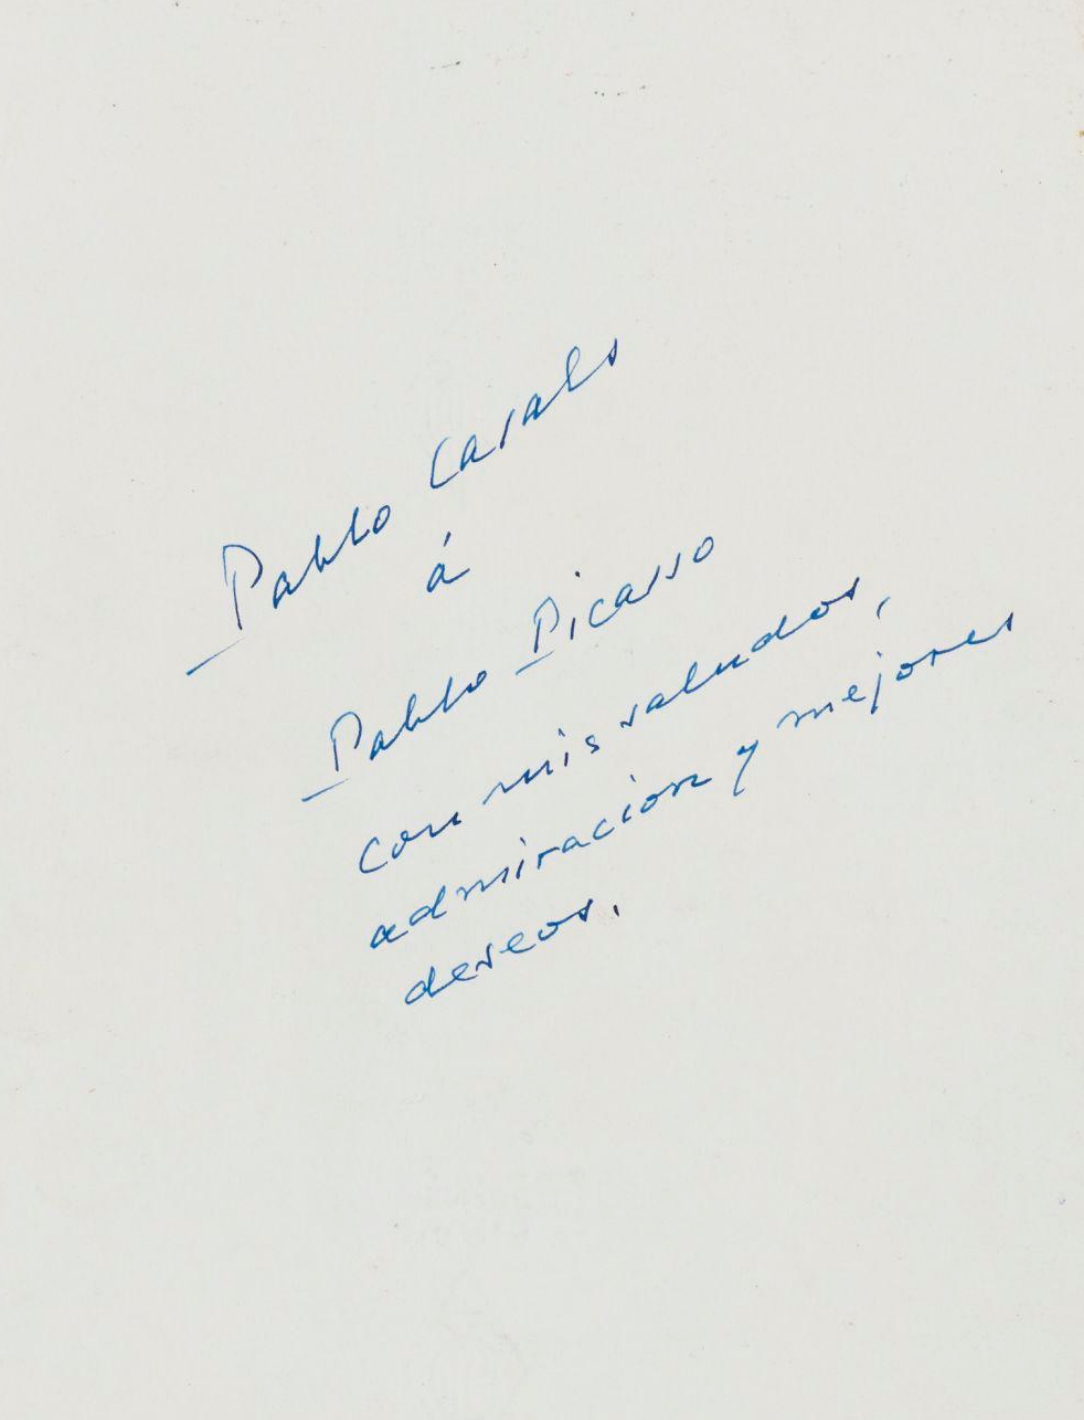 Pablo Casals
á
Pablo Picasso
con mis saludos,
admiracion y mejores
deseos.